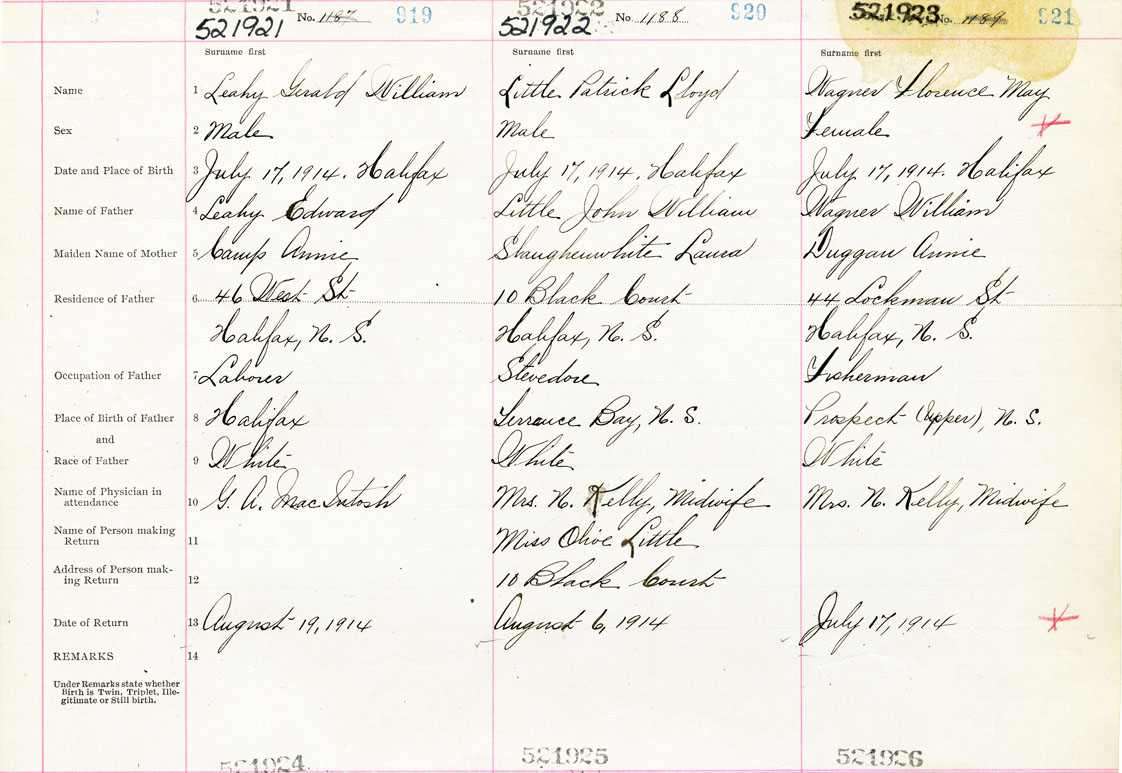 521921 521922 521923
No. 1187 919 No. 1188 920 No. 1189 921
521921 521922
Surname first Surname first Surname first
Name 1 Leahy Gerald William Little Patrick Lloyd Wagner Florence May
Sex 2 Male Male Female
Date and Place of Birth 3 July 17, 1914. Halifax July 17, 1914. Halifax July 17, 1914. Halifax
Name of Father 4 Leahy Edward Little John William Wagner William
Maiden Name of Mother 5 Camp Annie Shaughenwhite Laura Duggan Annie
Residence of Father 6 46 West St 10 Black Court 44 Lockman St
Halifax, N. S. Halifax, N. S. Halifax, N. S.
Occupation of Father 7 Laborer Stevedore Fisherman
Place of Birth of Father 8 Halifax Terrence Bay, N. S. Prospect (Upper), N. S.
and
Race of Father 9 White White White
Name of Physician in
attendance 10 G. A. MacIntosh Mrs. N. Kelly, Midwife Mrs. N. Kelly, Midwife
Name of Person making
Return 11 Miss Olive Little
Address of Person mak-
ing Return 12 10 Black Court
Date of Return 13 August 19, 1914 August 6, 1914 July 17, 1914
REMARKS 14
Under Remarks state whether
Birth is Twin, Triplet, Ille-
gitimate or Still birth.
521924 521925 521926